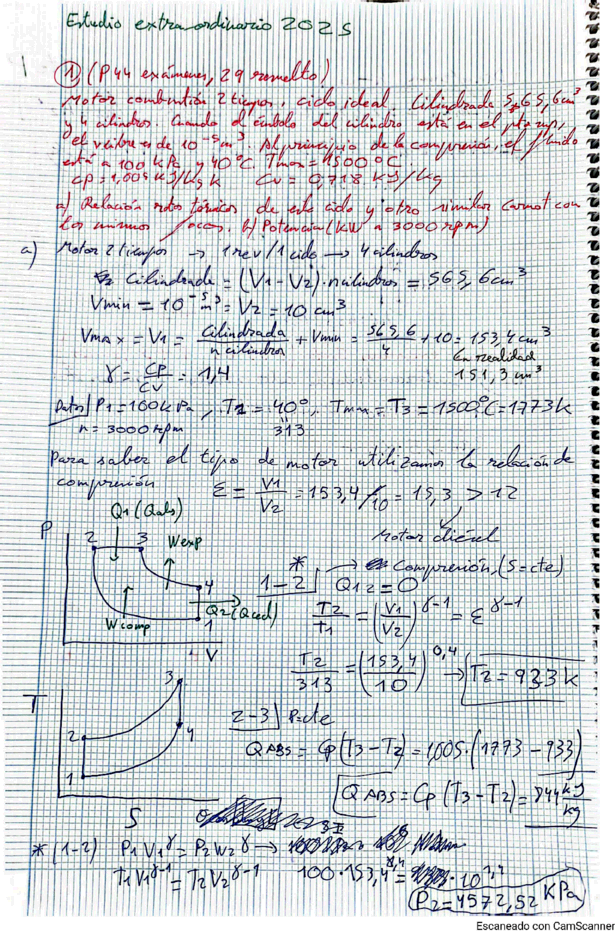 Estudio extraordinario 2025
1
① (P44 exámenes, 29 resuelto)
Motor combustión 2 tiempos, ciclo ideal. Cilindrada 565,6 cm³
y 4 cilindros. Cuando el émbolo del cilindro está en el pto sup,
el es de 10⁻⁵ m³. Al principio de la compresión, el fluido
está a 100 kPa y 40ºC. Tmax = 1500ºC.
Cp = 1,005 KJ/Kg K Cv = 0,718 KJ/Kg
a) Relación rtos térmicos de este ciclo y otro similar Carnot con
los mismos focos. b) Potencia (KW a 3000 rpm)
a) Motor 2 tiempos → 1 rev/1 ciclo → 4 cilindros
Cilindrada = (V1 - V2) · ncilindros = 565,6 cm³
Vmin = 10⁻⁵ m³ = V2 = 10 cm³
Vmax = V1 = Cilindrada / n cilindros + Vmin = 565,6 / 4 + 10 = 153,4 cm³
En realidad
151,3 cm³
γ = CP / CV = 1,4
Datos | P1 = 100 kPa, T1 = 40º, Tmax = T3 = 1500ºC = 1773 K
n = 3000 rpm 313
Para saber el tipo de motor utilizamos la relación de
compresión ε = V1 / V2 = 153,4/10 = 15,3 > 12
Q1 (Qabs)
Motor diésel
P 2 3 Wexp 4 Q2 (Qced) 1 Wcomp V
* → Compresión, (S = cte)
1-2 | Q12 = 0
T2 / T1 = (V1 / V2)^γ-1 = ε^γ-1
T2 / 313 = (153,4 / 10)^0,4 → T2 = 933 K
T 3 2 4 1 S
2-3 | P = cte
QABS = Cp (T3 - T2) = 1,005 · (1773 - 933)
QABS = Cp (T3 - T2) = 844 KJ/Kg
* (1-2) P1 V1^γ = P2 V2^γ →
T1 V1^γ-1 = T2 V2^γ-1 100 · 153,4^1,4 = · 10^1,4
P2 = 4572,52 KPa
Escaneado con CamScanner